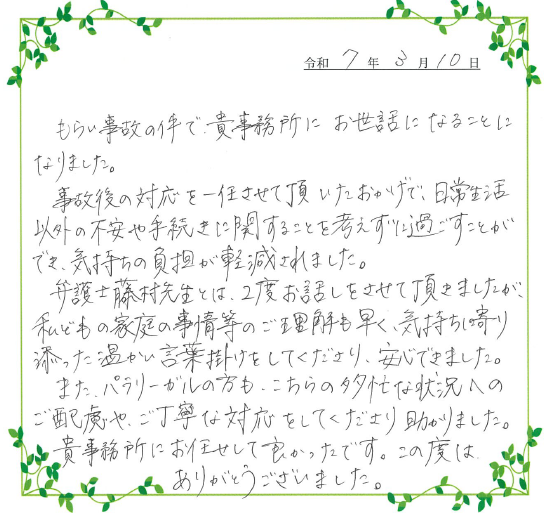 令和 7 年 3 月 10 日
もらい事故の件で、貴事務所に お世話に なることに
なりました。
事故後の対応を一任させて頂いたおかげで、日常生活
以外の不安や手続きに関することを考えずに過ごすことが
でき、気持ちの負担が軽減されました。
弁護士藤村先生とは、2度お話しをさせて頂きましたが、
私どもの家庭の事情等のご理解も早く、気持ちに寄り
添った温かい言葉掛けをしてくださり、安心できました。
また、パラリーガルの方も、こちらの多忙な状況への
ご配慮や、ご丁寧な対応をしてくださり助かりました。
貴事務所にお任せして良かったです。この度は
ありがとうございました。